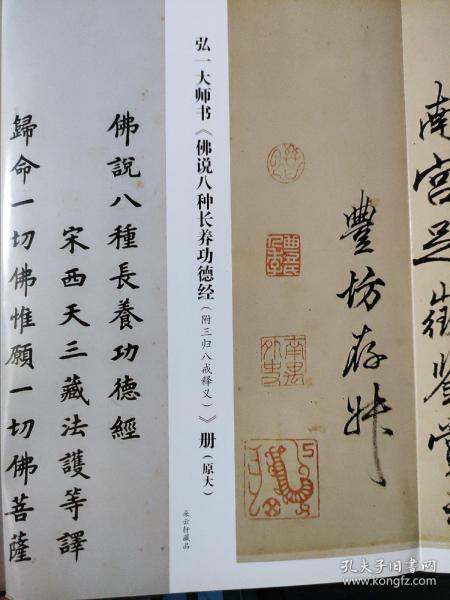 南宮足徵鑒賞
豐坊存叔
南禺外史
弘一大师书《佛说八种长养功德经（附三归八戒释义）》册（原大）
朵云轩藏品
佛說八種長養功德經
宋西天三藏法護等譯
歸命一切佛惟願一切佛菩薩
孔夫子旧书网
www.kongfz.com